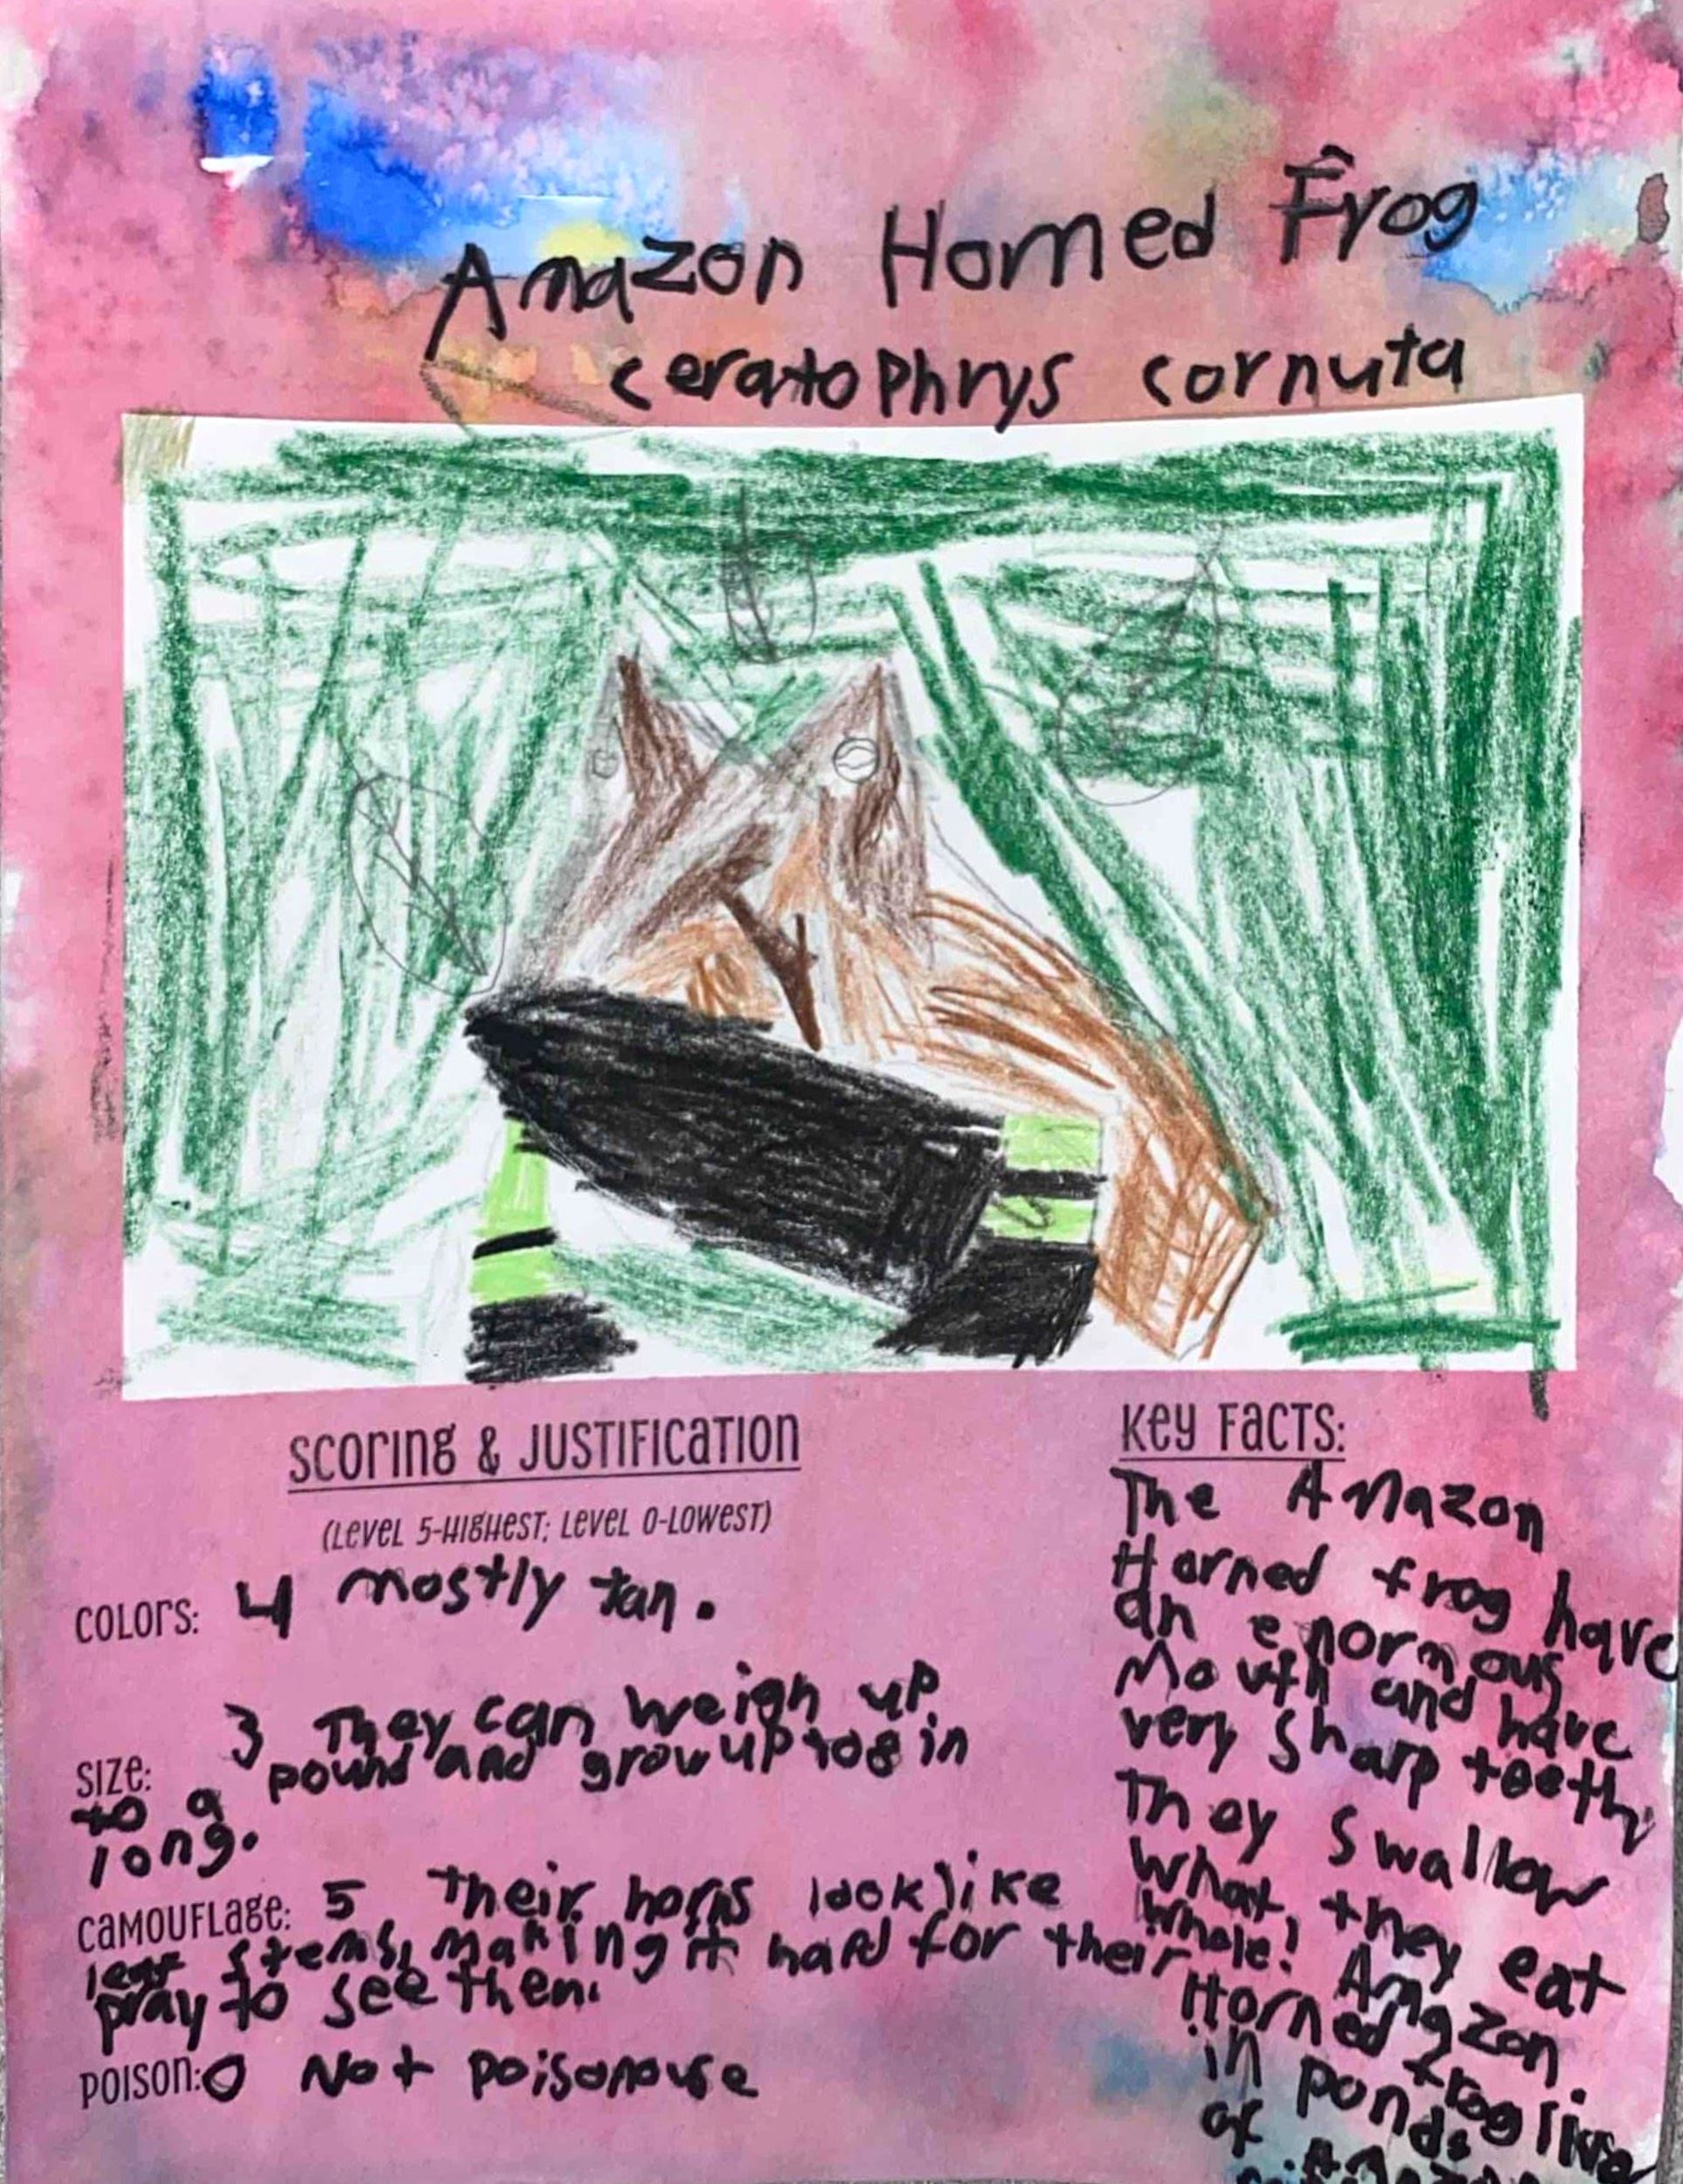 Amazon Horned Frog
ceratophrys cornuta
SCORING & JUSTIFICATION
(LEVEL 5-HIGHEST; LEVEL 0-LOWEST)
COLORS: 4 mostly tan.
SIZE: 3 They can weigh up
to a pound and grow up to 8 in
long.
CAMOUFLAGE: 5 their horns look like
leaf stems, making it hard for their
pray to see them.
POISON: 0 Not poisonouse
KEY FACTS:
The Amazon
Horned frog have
an enormous
Mouth and have
very sharp teeth
They swallow
what they eat
whole! Amazon
Horned frog live
in ponds.
of